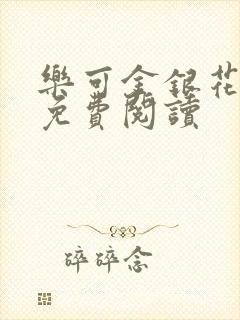 樂可金銀花
免費閱讀
碎碎念